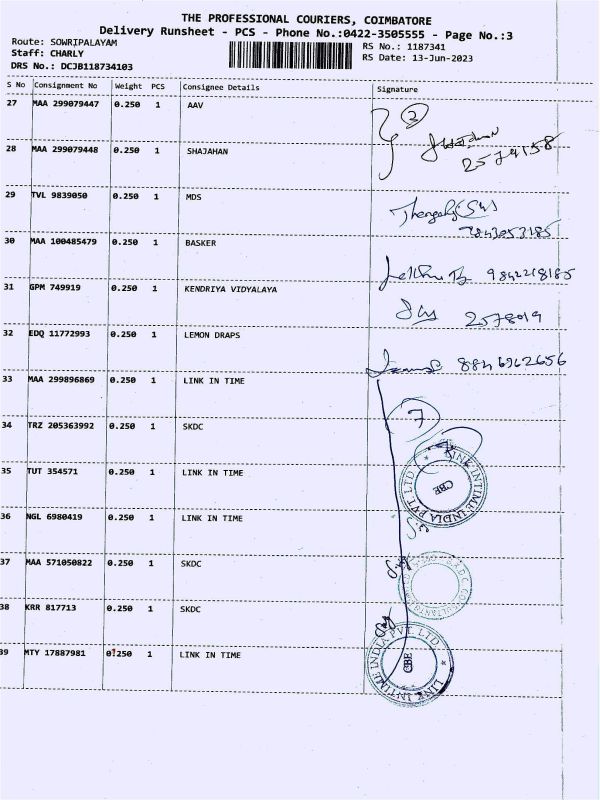 THE PROFESSIONAL COURIERS, COIMBATORE
Delivery Runsheet - PCS - Phone No.:0422-3505555 - Page No.:3
Route: SOWRIPALAYAM
RS No.: 1187341
Staff: CHARLY
RS Date: 13-Jun-2023
DRS No.: DCJB118734103
S No Consignment No Weight PCS Consignee Details Signature
27 MAA 299079447 0.250 1 AAV
2
28 MAA 299079448 0.250 1 SHAJAHAN
2574158
29 TVL 9839050 0.250 1 MDS
7843053185
30 MAA 100485479 0.250 1 BASKER
9842218185
31 GPM 749919 0.250 1 KENDRIYA VIDYALAYA
2578019
32 EDQ 11772993 0.250 1 LEMON DRAPS
33 MAA 299896869 0.250 1 LINK IN TIME
7
34 TRZ 205363992 0.250 1 SKDC
LINK INTIME INDIA PVT LTD
CBE
35 TUT 354571 0.250 1 LINK IN TIME
36 NGL 6980419 0.250 1 LINK IN TIME
37 MAA 571050822 0.250 1 SKDC
38 KRR 817713 0.250 1 SKDC
39 MTY 17887981 0.250 1 LINK IN TIME
LINK INTIME INDIA PVT. LTD
CBE